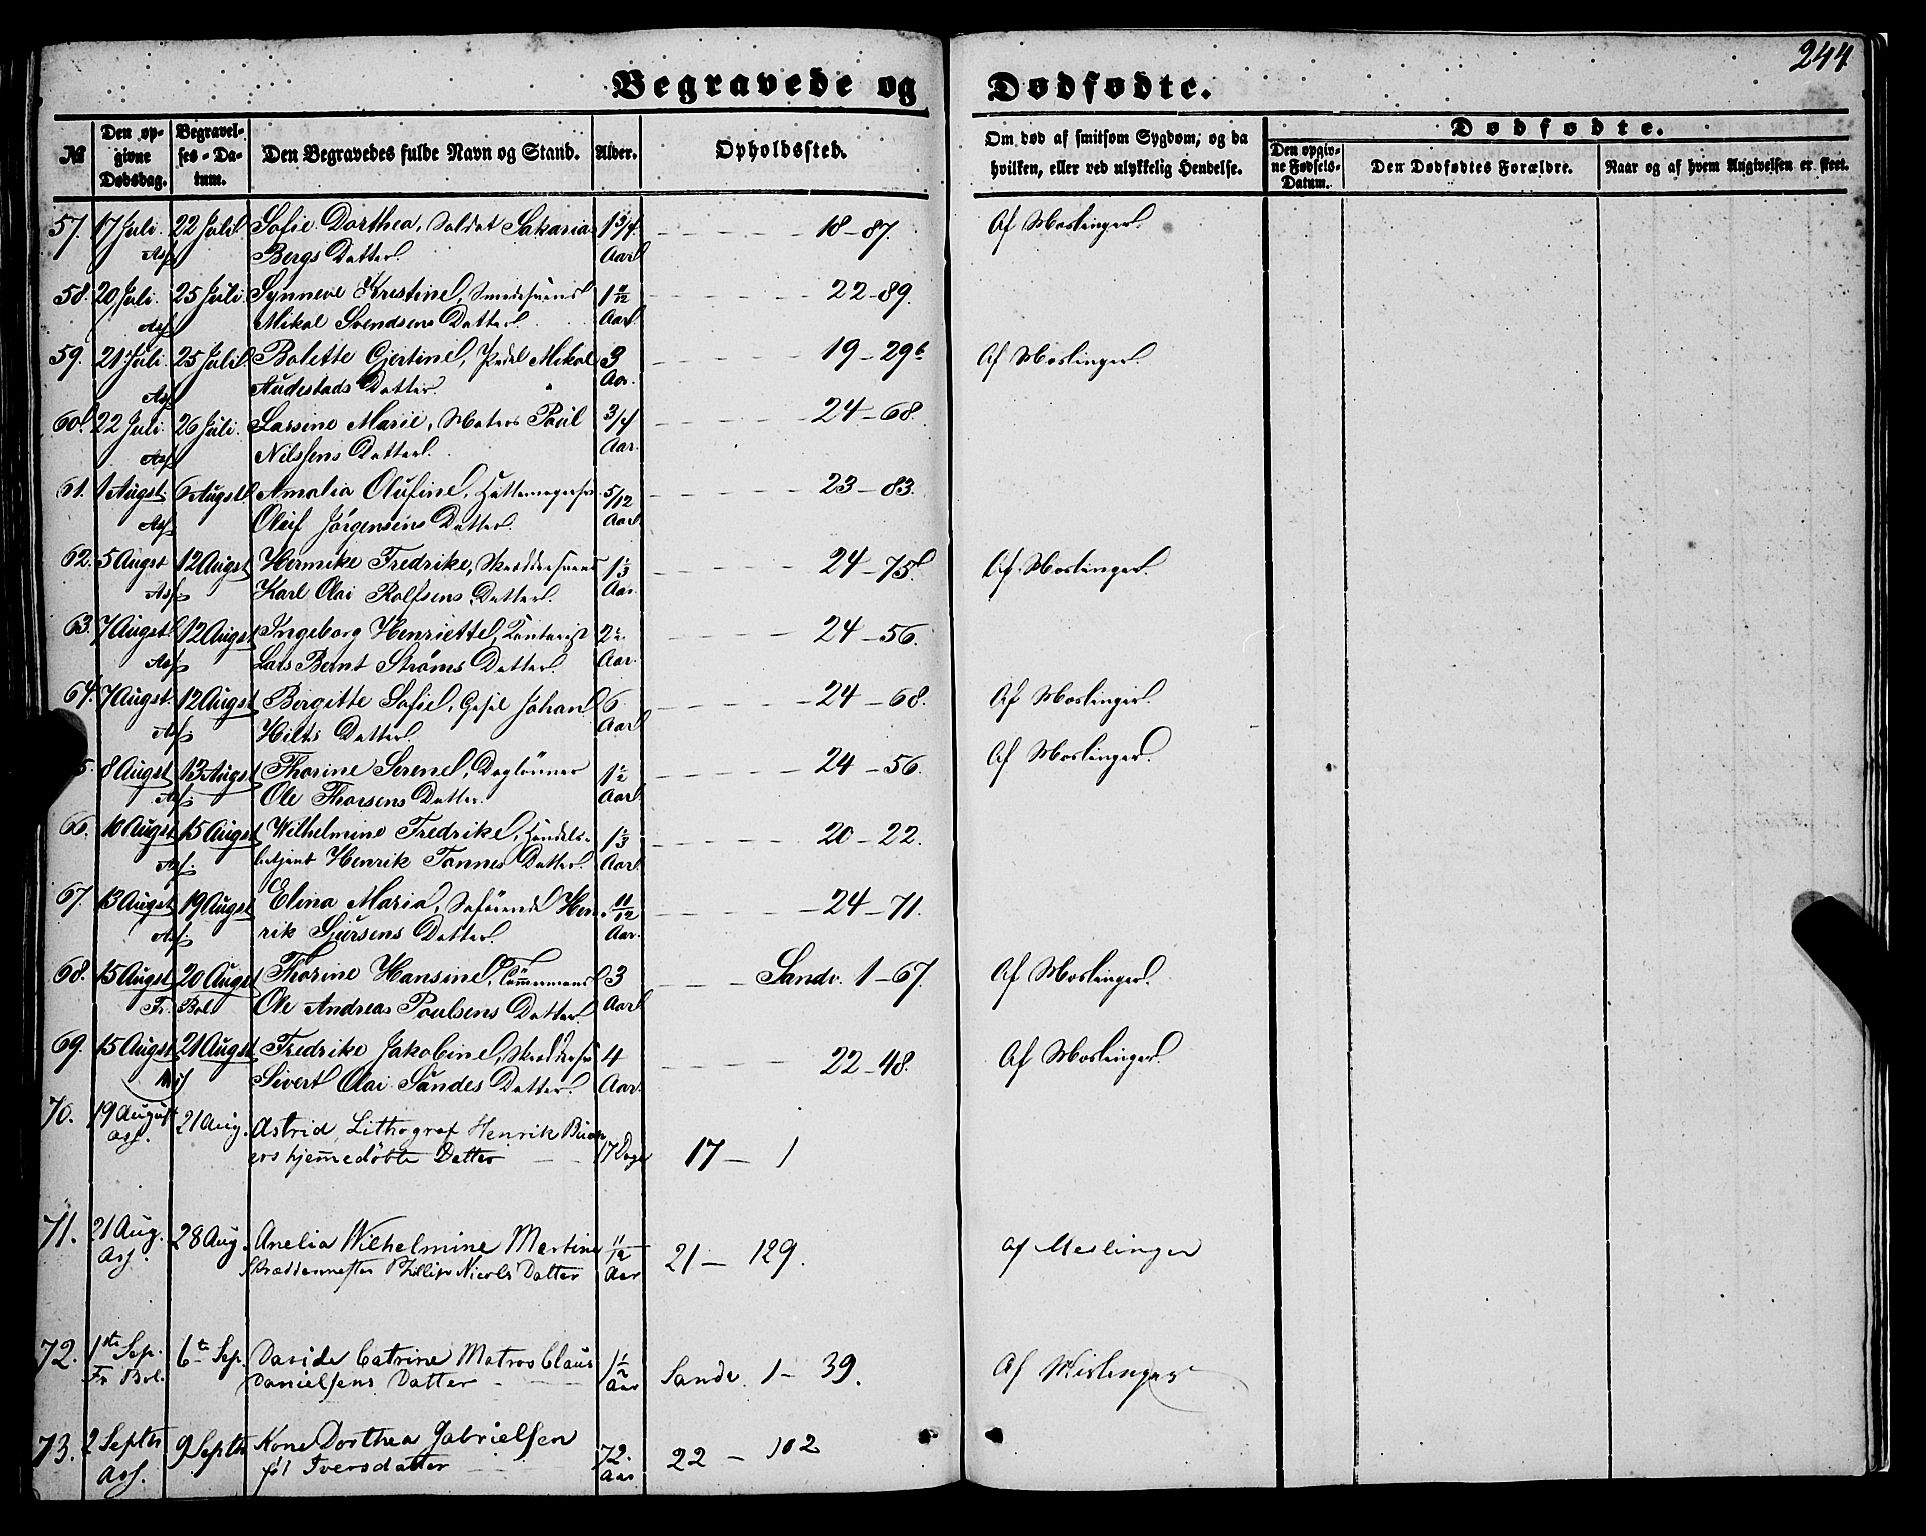 244
Begravede og Dødfødte.
№ Den opgivne Dødsdag. Begravelses-Datum. Den Begravedes fulde Navn og Stand. Alder. Opholdssted. Om død af smitsom Sygdom, og da hvilken, eller ved ulykkelig Hendelse. Dødfødte. Den opgivne Fødsels-Datum. Den Dødfødtes Forældre. Naar og af hvem Angivelsen er skeet.
57. 17 Juli. 22 Juli. Sofie Dorthea, Soldat Sakarias 1 3/4 18-87. Af Meslinger.
Ass. Bergs Datter. Aar.
58. 20 Juli. 25 Juli. Synneve Kristine, Smedesvend 22-89.
Ass. Mikal Svendsens Datter. Aar.
59. 21 Juli. 25 Juli. Bolette Gjertine, Mikal 3 19-29b Af Meslinger.
Ass. Audestads Datter. Aar.
60. 22 Juli. 26 Juli. Larsine Marie, Matros Poul 3/4 24-68.
Ass. Nilssens Datter. Aar.
61. 1 Augst. 6 Augst. Amalia Olufine, 5/12 23-83.
Ass. Oluf Jørgensens Datter. Aar.
62. 5 Augst 12 Augst Fredrike, Skræddersvend 1 1/3 24-75. Af Meslinger.
Ass. Karl Olai Rolfsens Datter. Aar.
63. 7 Augst 12 Augst Ingeborg Henriette, Kontorist 2 24-56.
Ass. Lars Bernt Strøms Datter. Aar.
64. 7 Augst. 12 Augst Bergitte Sofie, Johan 6 24-68. Af Meslinger.
Ass. Hilts Datter. Aar.
5. 8 Augst 13 Augst Thorine Serene, Daglønner 1 1/2 24-56. Af Meslinger.
Ass. Ole Thorsens Datter. Aar.
66. 10 Augst 15 Augst Wilhelmine Fredrike, Handels- 1 1/3 20-22.
Ass. betjent Henrik Tonnes Datter. Aar.
67. 13 Augst 19 Augst Elina Maria, Søfarende Hen- 11/12 24-71.
Ass. rik Sjursens Datter. Aar.
68. 15 Augst 20 Augst Thorine Hansine, Tømmermand 3 Sandv. 1-67. Af Meslinger.
Fr. Bol. Ole Andreas Poulsens Datter. Aar.
69. 15 Augst 21 Augst Fredrike Jakobine, 4 22-48. Af Meslinger.
Sivert Olai Sundes Datter. Aar.
70. 19 August 21 Aug. Astrid, Lithograf Henrik 17 Dage 17-1
Ass. hjemmedøbte Datter
71. 21 Aug. 28 Aug. Anelia Wilhelmine Martine 11/12 21-129. af Meslinger
Ass. Phillip Nicols Datter Aar
72. 1ste Sep. 6te Sep. Davide Catrine Matros Claus 1 1/2 Sandv. 1-39. Af Meslinger
Fr Bol. Danielsens Datter Aar
73. 2 Septbr 9 Septbr Kone Dorthea Gabrielsen 72. 22-102
Ass. Iversdatter Aar